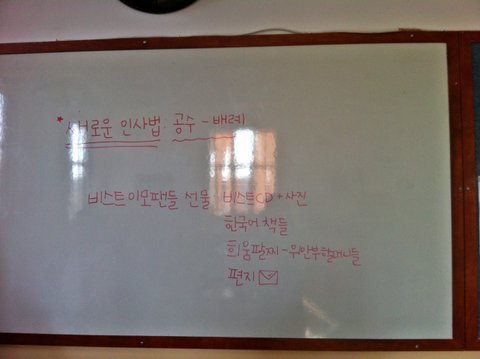 * 새로운 인사법: 공수 - 배례
비스트 이모팬들 선물: 비스트CD + 사진
한국어 책들
희움팔찌 - 위안부할머니들
편지